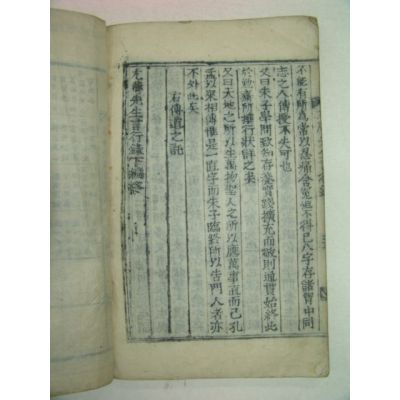 不能有所為常以忍痛含冤迫不得已八字存諸胷中同
志之人傳授不失可也
又曰朱子學問致知存養實踐擴充而敬則通貫始終
於勉齋所撰行狀詳之矣
又曰天地之所以生萬物聖人之所以應萬事直而已孔
孟以來相傳惟是一直字而朱子臨終所以告門人者亦
不外此矣
右傳道之託
尤菴先生言行錄下編終